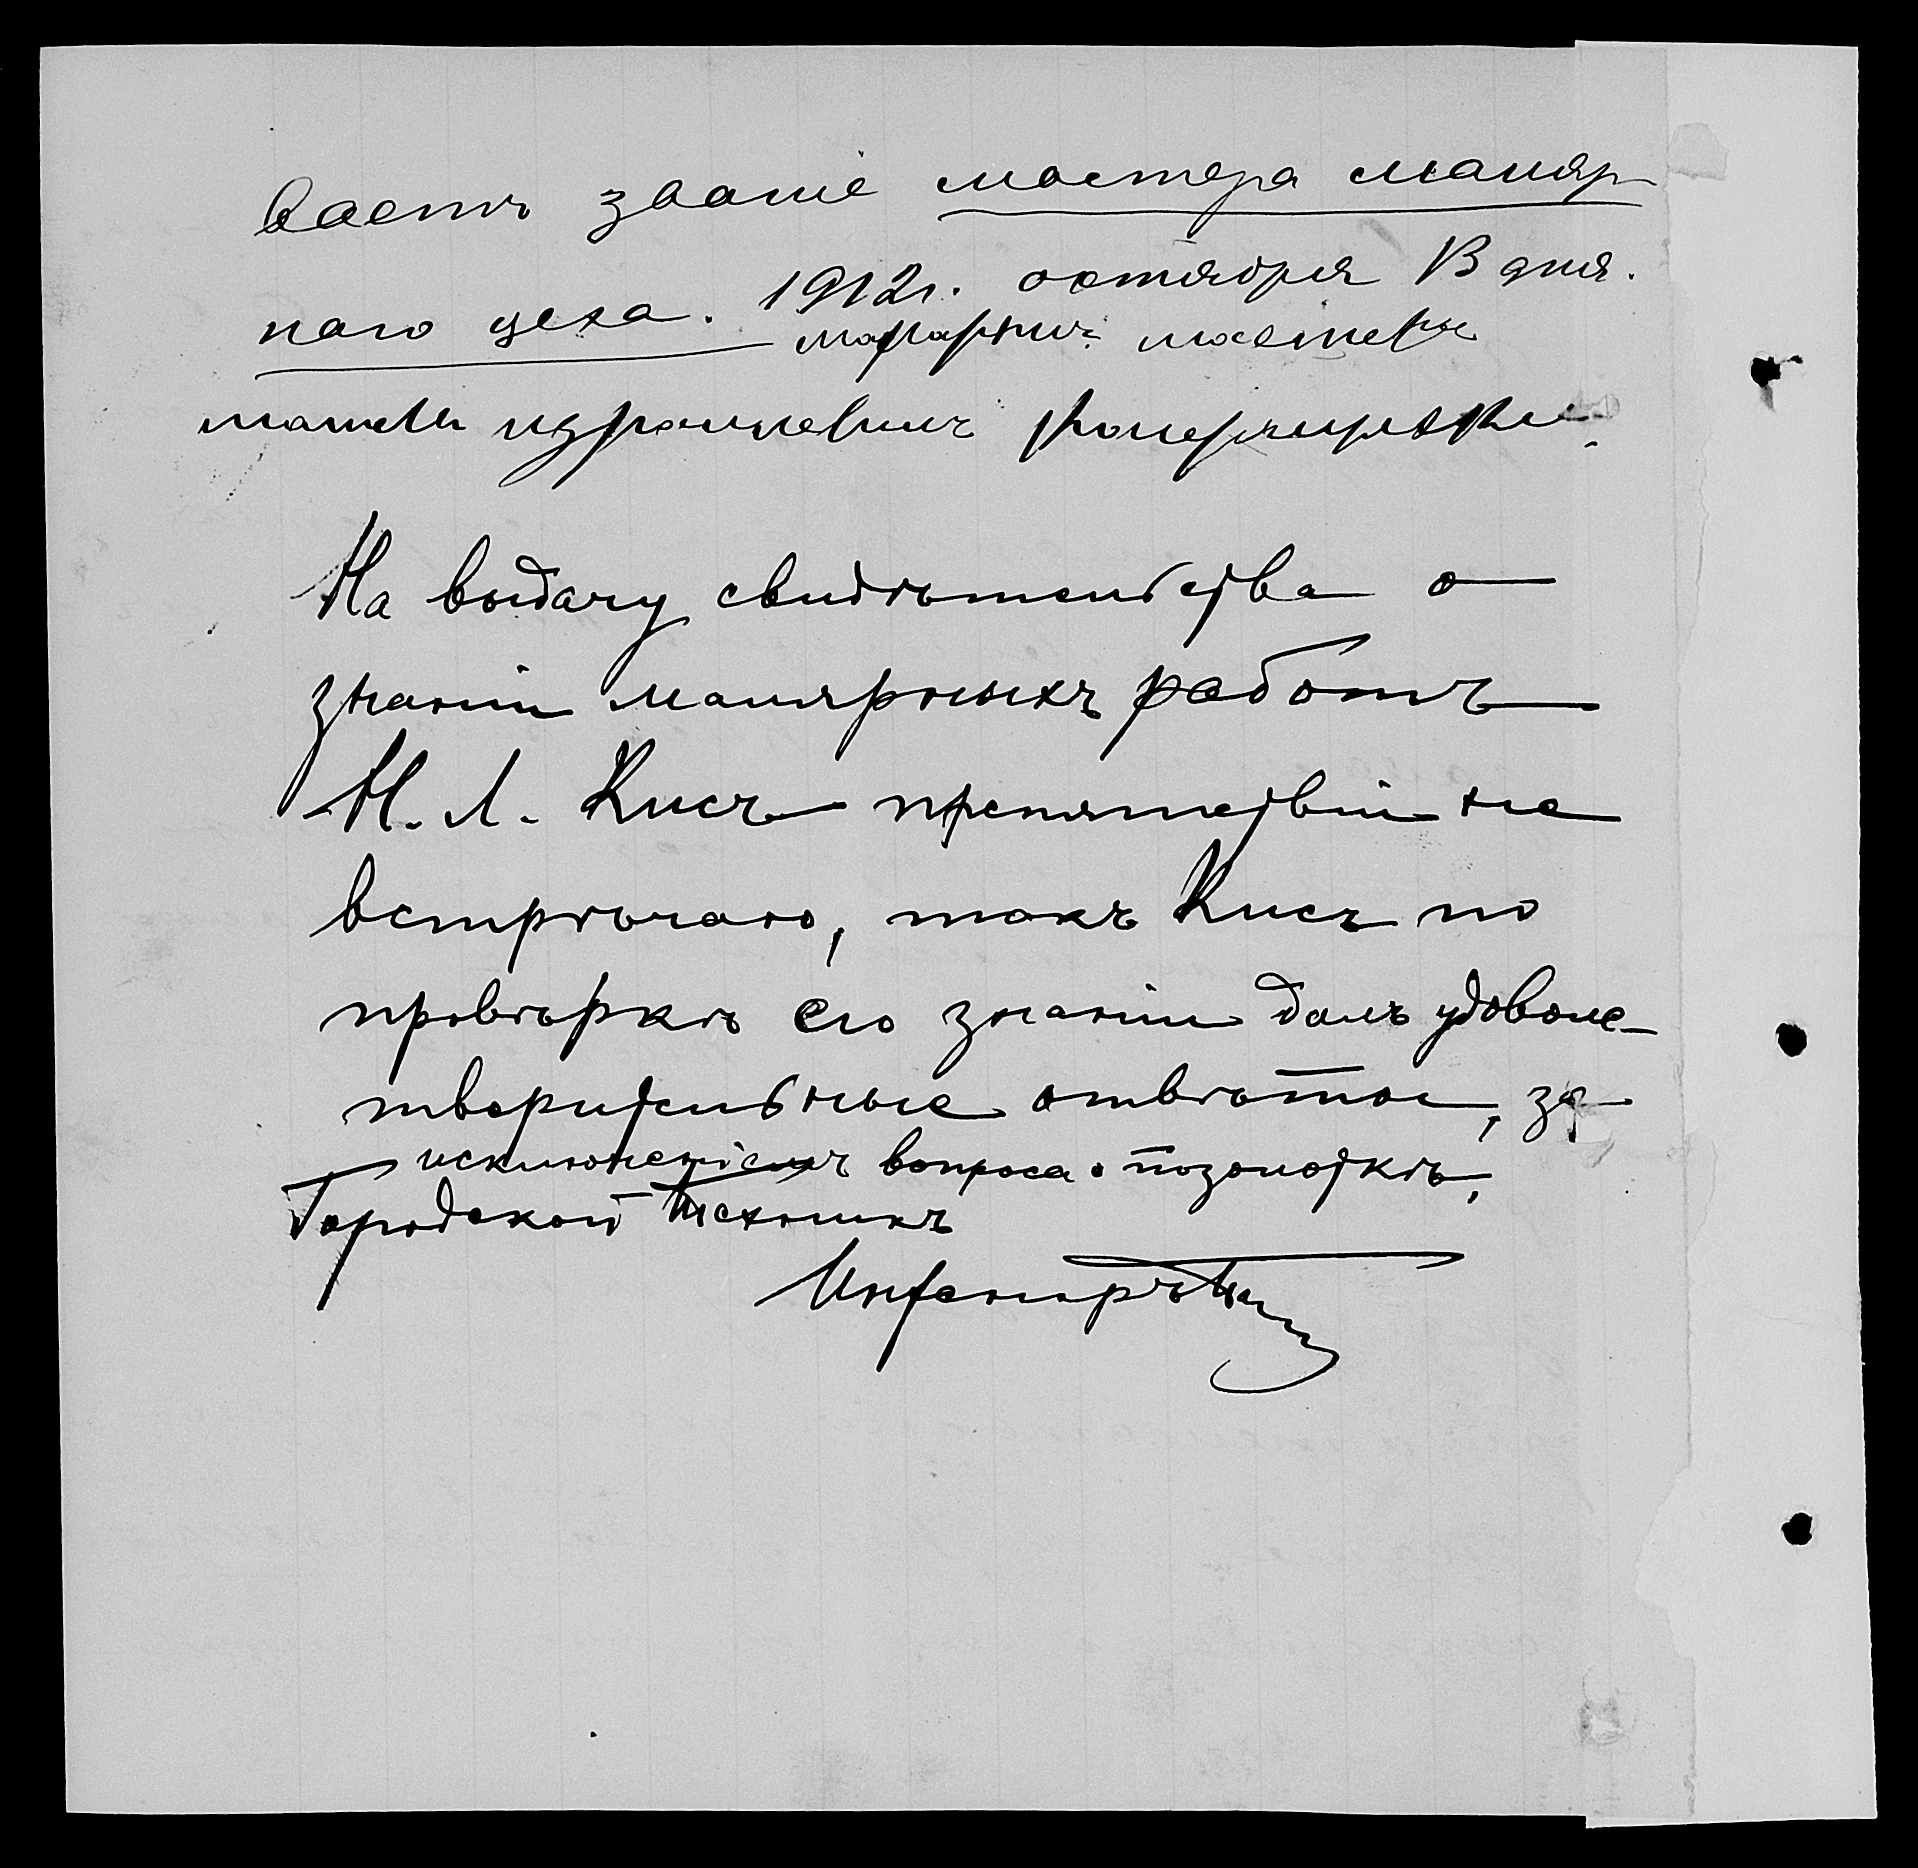 ваетъ званіе мастера маляр-
наго цеха. 1912 г. октября 13 дня.
малярнич мастеръ
Израилевич
На выдачу свидѣтельства о
знаніи малярныхъ работъ
Н. Л. Кисъ препятствій не
встрѣчаю, такъ Кисъ по
провѣркѣ его знаніи далъ удовле-
творительные отвѣты, за
исключеніемъ вопроса о позолоткѣ,
Городской Техникъ
Инженеръ